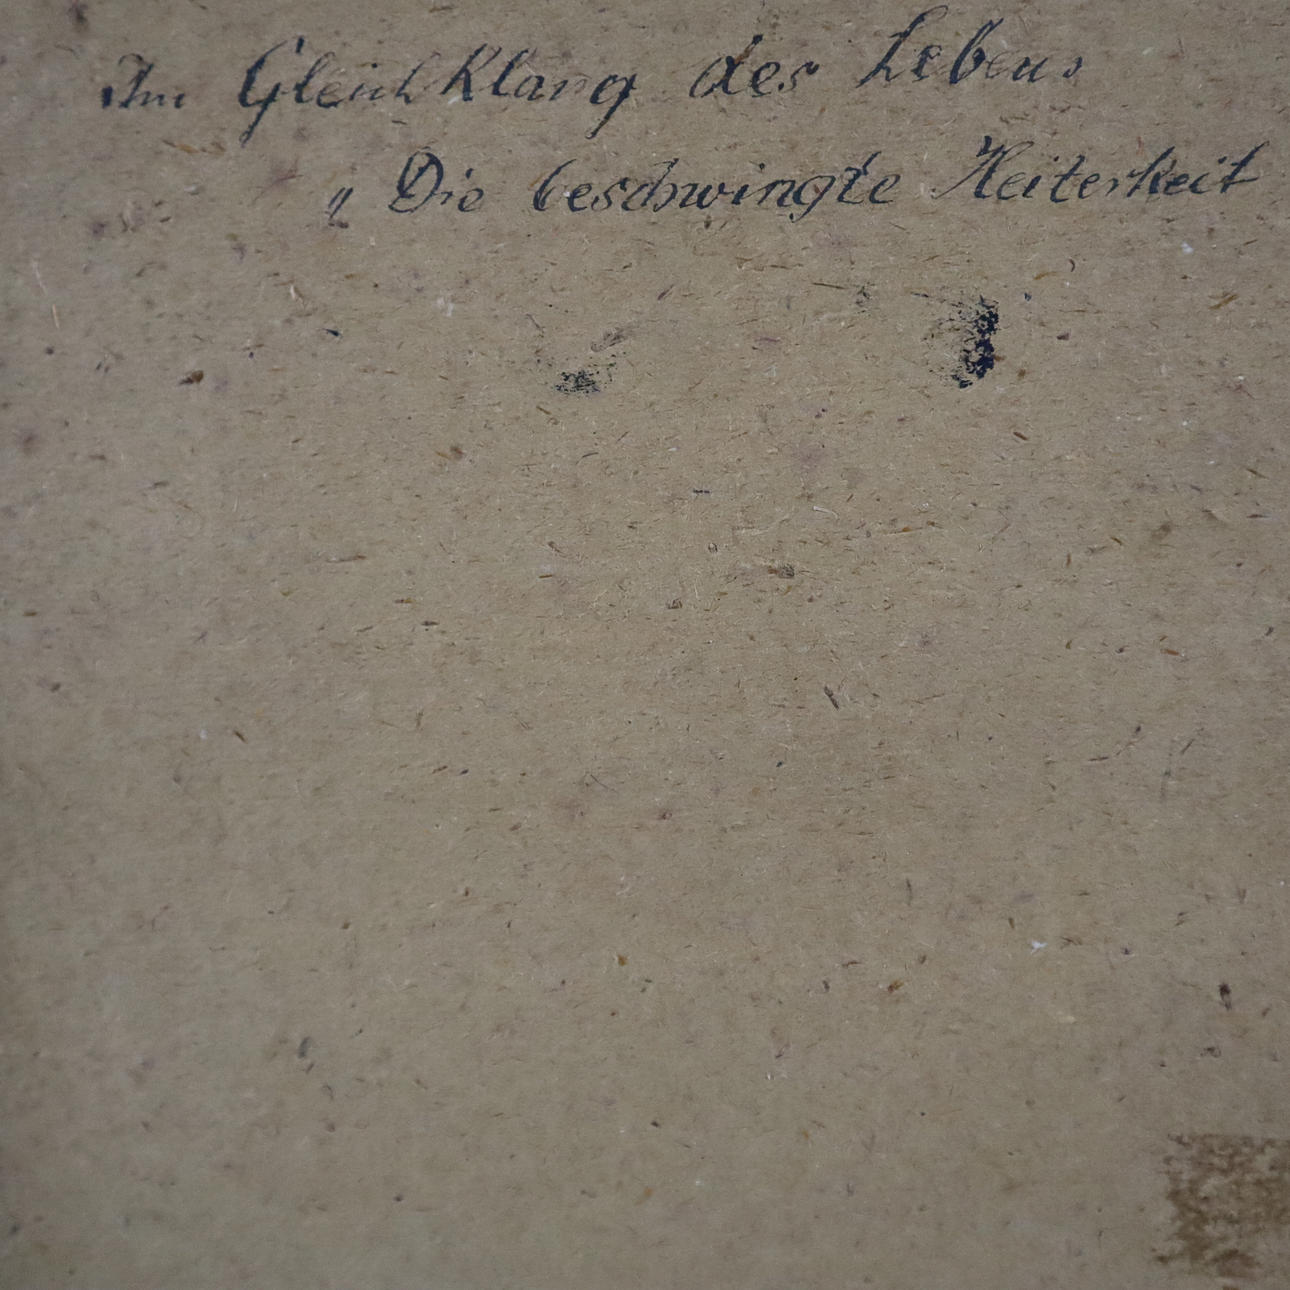 Im GleichKlang des Lebens
„ Die beschwingte Heiterkeit